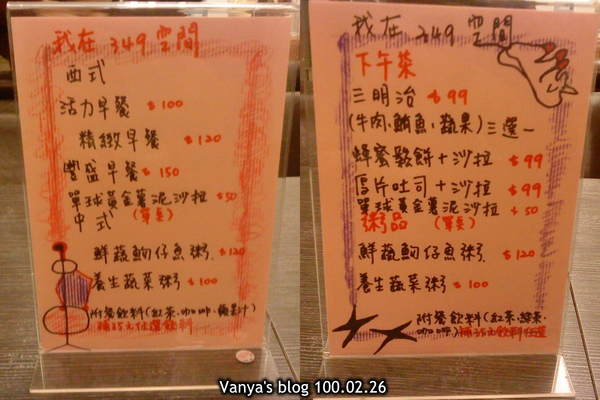 我在 349 空間
西式
活力早餐 $100
精緻早餐 $120
豐盛早餐 $150
單球黃金薯泥沙拉 $50
中式 (單點)
鮮蔬魩仔魚粥 $120
養生蔬菜粥 $100
附餐飲料(紅茶、咖啡、蘋果汁)
補35元任選飲料
我在 349 空間
下午茶
三明治 $99
(牛肉、鮪魚、蔬果)三選一
蜂蜜鬆餅+沙拉 $99
厚片吐司+沙拉 $99
單球黃金薯泥沙拉 $50
粥品 (單點)
鮮蔬魩仔魚粥 $120
養生蔬菜粥 $100
附餐飲料(紅茶、綠茶、
咖啡)補35元飲料任選
Vanya's blog 100.02.26